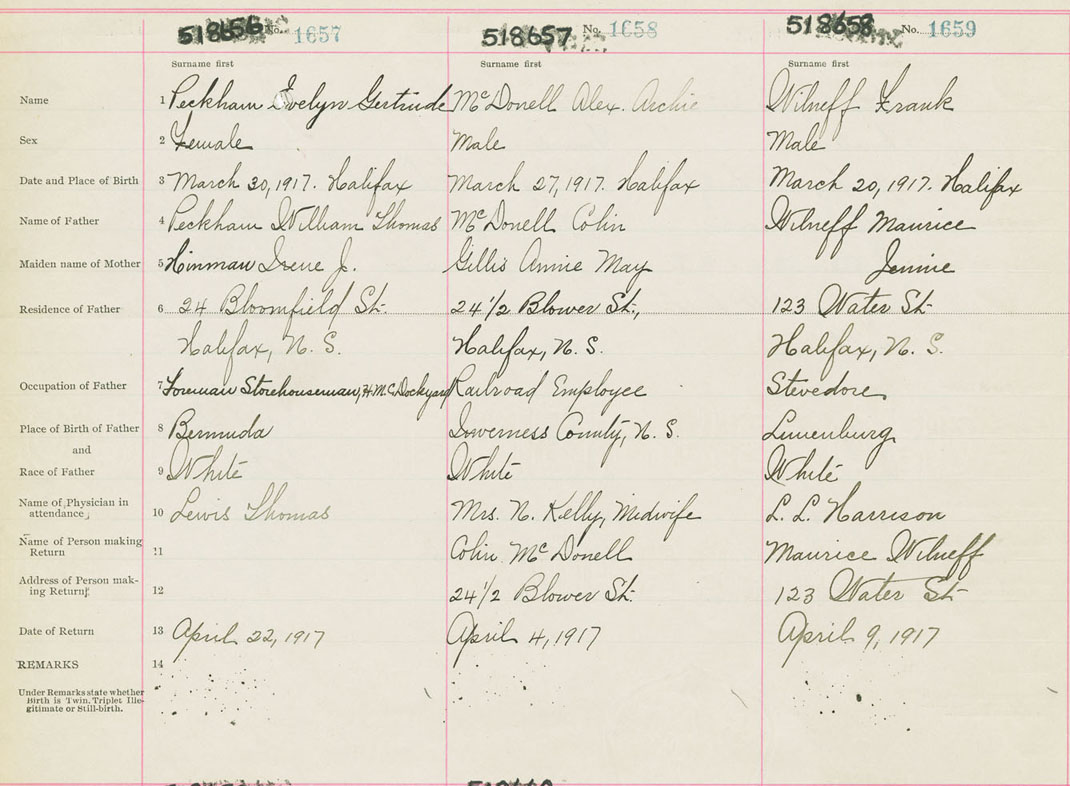 518656 No. 1657 518657 No. 1658 518658 No. 1659
Surname first Surname first Surname first
Name 1 Peckham Evelyn Gertrude McDonell Alex. Archie Wilneff Frank
Sex 2 Female Male Male
Date and Place of Birth 3 March 30, 1917. Halifax March 27, 1917. Halifax March 20, 1917. Halifax
Name of Father 4 Peckham William Thomas McDonell Colin Wilneff Maurice
Maiden name of Mother 5 Hinman Irene J. Gillis Annie May Jennie
Residence of Father 6 24 Bloomfield St. 24 1/2 Blower St., 123 Water St.
Halifax, N. S. Halifax, N. S. Halifax, N. S.
Occupation of Father 7 Foreman Storehouseman, H.M.C. Dockyard Railroad Employee Stevedore
Place of Birth of Father 8 Bermuda Inverness County, N. S. Lunenburg
and
Race of Father 9 White White White
Name of Physician in
attendance 10 Lewis Thomas Mrs. N. Kelly, Midwife L. L. Harrison
Name of Person making
Return 11 Colin McDonell Maurice Wilneff
Address of Person mak-
ing Return 12 24 1/2 Blower St. 123 Water St.
Date of Return 13 April 22, 1917 April 4, 1917 April 9, 1917
REMARKS 14
Under Remarks state whether
Birth is Twin, Triplet Ille-
gitimate or Still-birth.